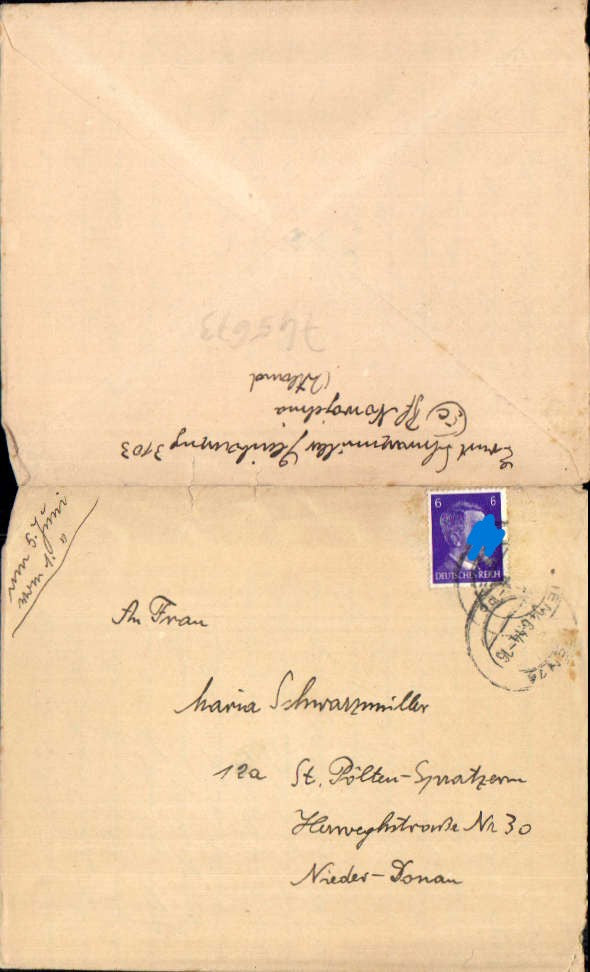 745673
Ernst Schwarzmüller 3103
vom 5. Juni
vom 1.
6 6
DEUTSCHES REICH
An Frau
Maria Schwarzmüller
12a St. Pölten-Spratzern
Herweghstraße Nr 30
Nieder-Donau